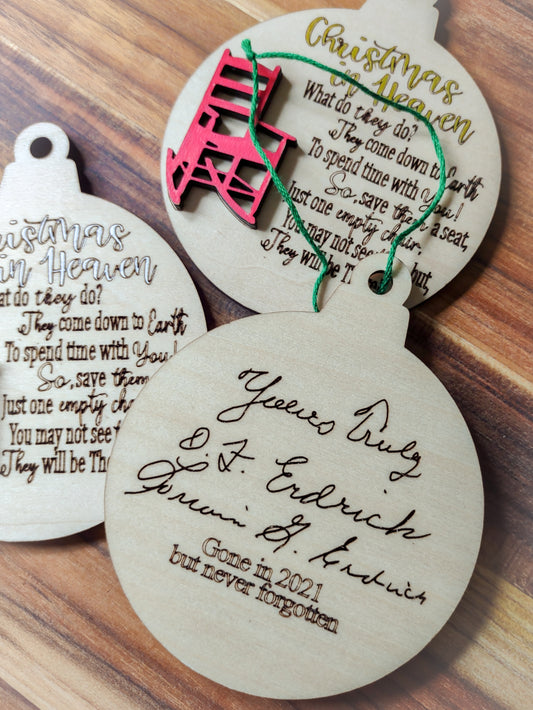 Christmas
in Heaven
What do they do?
They come down to Earth
To spend time with You!
So, save them a seat,
Just one empty chair.
You may not see but,
They will be T
Christmas
in Heaven
What do they do?
They come down to Earth
To spend time with You!
So, save them
Just one empty chair
You may not see t
They will be The
Yours Truly
D. F. Erdrich
Lorrain G. Erdrich
Gone in 2021
but never forgotten